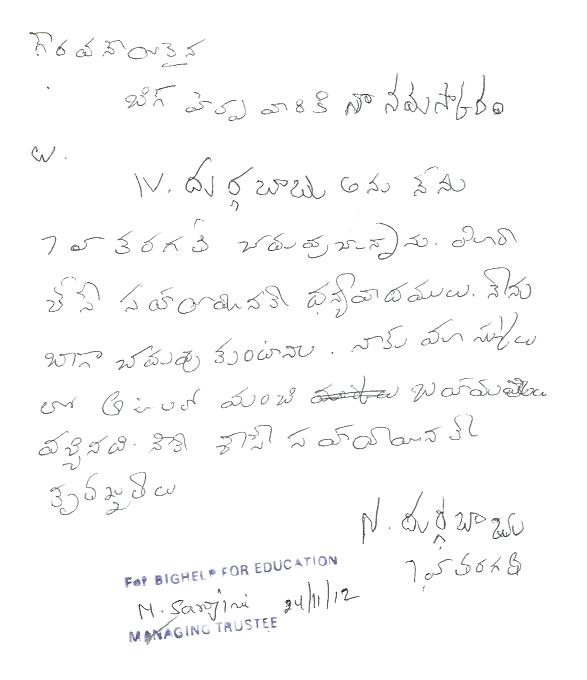 గౌరవనీయులైన
బిగ్ హెల్పు వారికి నా నమస్కారం
N. దుర్గబాబు అను నేను
7 వ తరగతి చదువుచున్నాను. మీరు
చేసే సహాయానికి ధన్యవాదములు. నేను
బాగా చదువు కుంటాను. నాకు మా స్కూలు
లో ఆటలలో మంచి బహుమతులు
వచ్చినవి. సహాయానికి
కృతజ్ఞతలు
N. దుర్గబాబు
7వ తరగతి
For BIGHELP FOR EDUCATION
M. Sarojini 24/11/12
MANAGING TRUSTEE